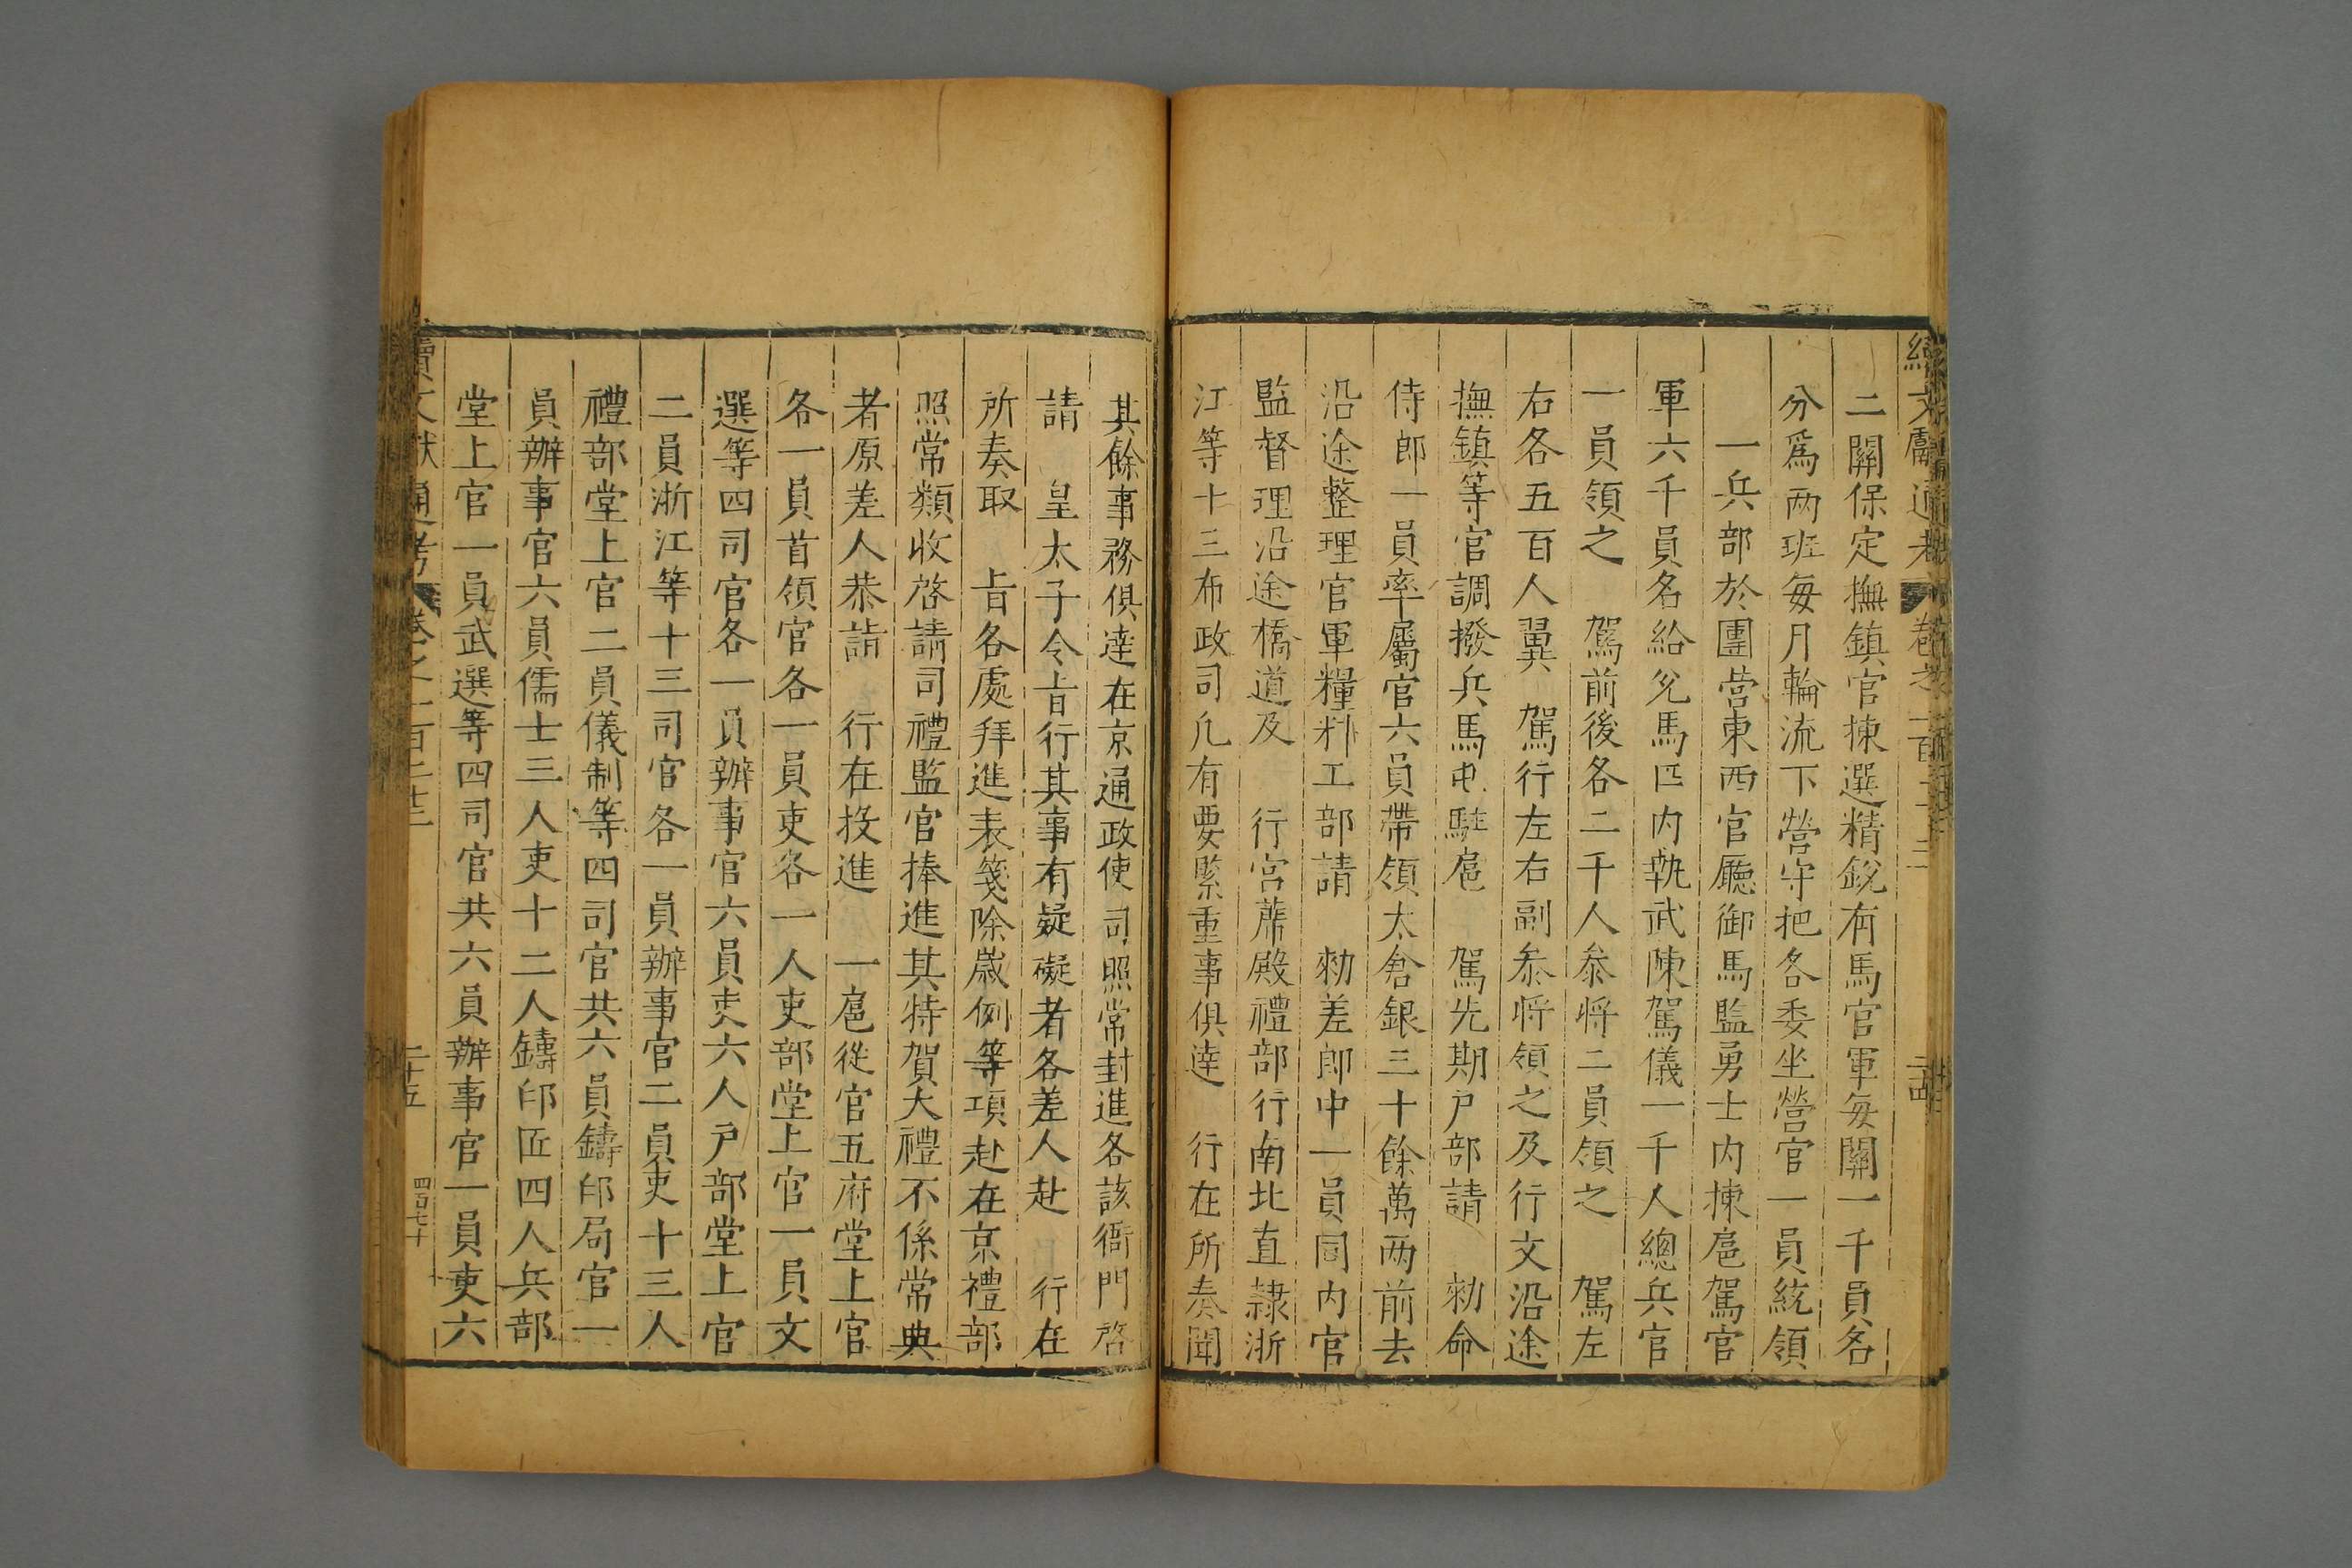 續文獻通考 卷之一百二十三 二十四
二關保定撫鎮官揀選精銳有馬官軍每關一千員名
分爲兩班每月輪流下營守把各委坐營官一員統領
一兵部於團營東西官廳御馬監勇士内揀扈駕官
軍六千員名給兊馬匹内執武陳駕儀一千人總兵官
一員領之 駕前後各二千人叅將二員領之 駕左
右各五百人翼 駕行左右副叅將領之及行文沿途
撫鎮等官調撥兵馬屯駐扈 駕先期戸部請 勑命
侍郎一員率屬官六員帶領太倉銀三十餘萬兩前去
沿途整理官軍糧料工部請 勑差郎中一員同内官
監督理沿途橋道及 行宮蓆殿禮部行南北直隷浙
江等十三布政司凢有要緊重事俱逹 行在所奏聞
其餘事務俱逹在京通政使司照常封進各該衙門啓
請 皇太子令旨行其事有疑礙者各差人赴 行在
所奏取 旨各處拜進表箋除歲例等項赴在京禮部
照常類收啓請司禮監官捧進其特賀大禮不係常典
者原差人恭詣 行在投進 一扈從官五府堂上官
各一員首領官各一員吏各一人吏部堂上官一員文
選等四司官各一員辦事官六員吏六人戸部堂上官
二員浙江等十三司官各一員辦事官二員吏十三人
禮部堂上官二員儀制等四司官共六員鑄印局官一
員辦事官六員儒士三人吏十二人鑄印匠四人兵部
堂上官一員武選等四司官共六員辦事官一員吏六
續文獻通考 卷之一百二十三 二十五 四百七十